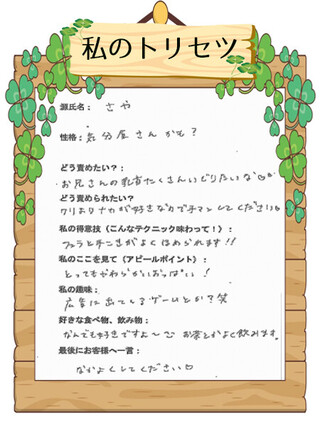 私のトリセツ
源氏名： さや
性格： 気分屋さんかも？
どう責めたい？：
お兄さんの乳首たくさんいじりたいな♡
どう責められたい？
クリよりナカが好きなので手マンしてください♡
私の得意技（こんなテクニック味わって！）：
フェラと手こきがよくほめられます!!
私のここを見て（アピールポイント）：
とってもやわらかいおっぱい！
私の趣味：
広告に出てしるゲームとか？笑
好きな食べ物、飲み物：
なんでも好きですよ〜 お茶とかよく飲みます。
最後にお客様へ一言：
なかよくしてください♡